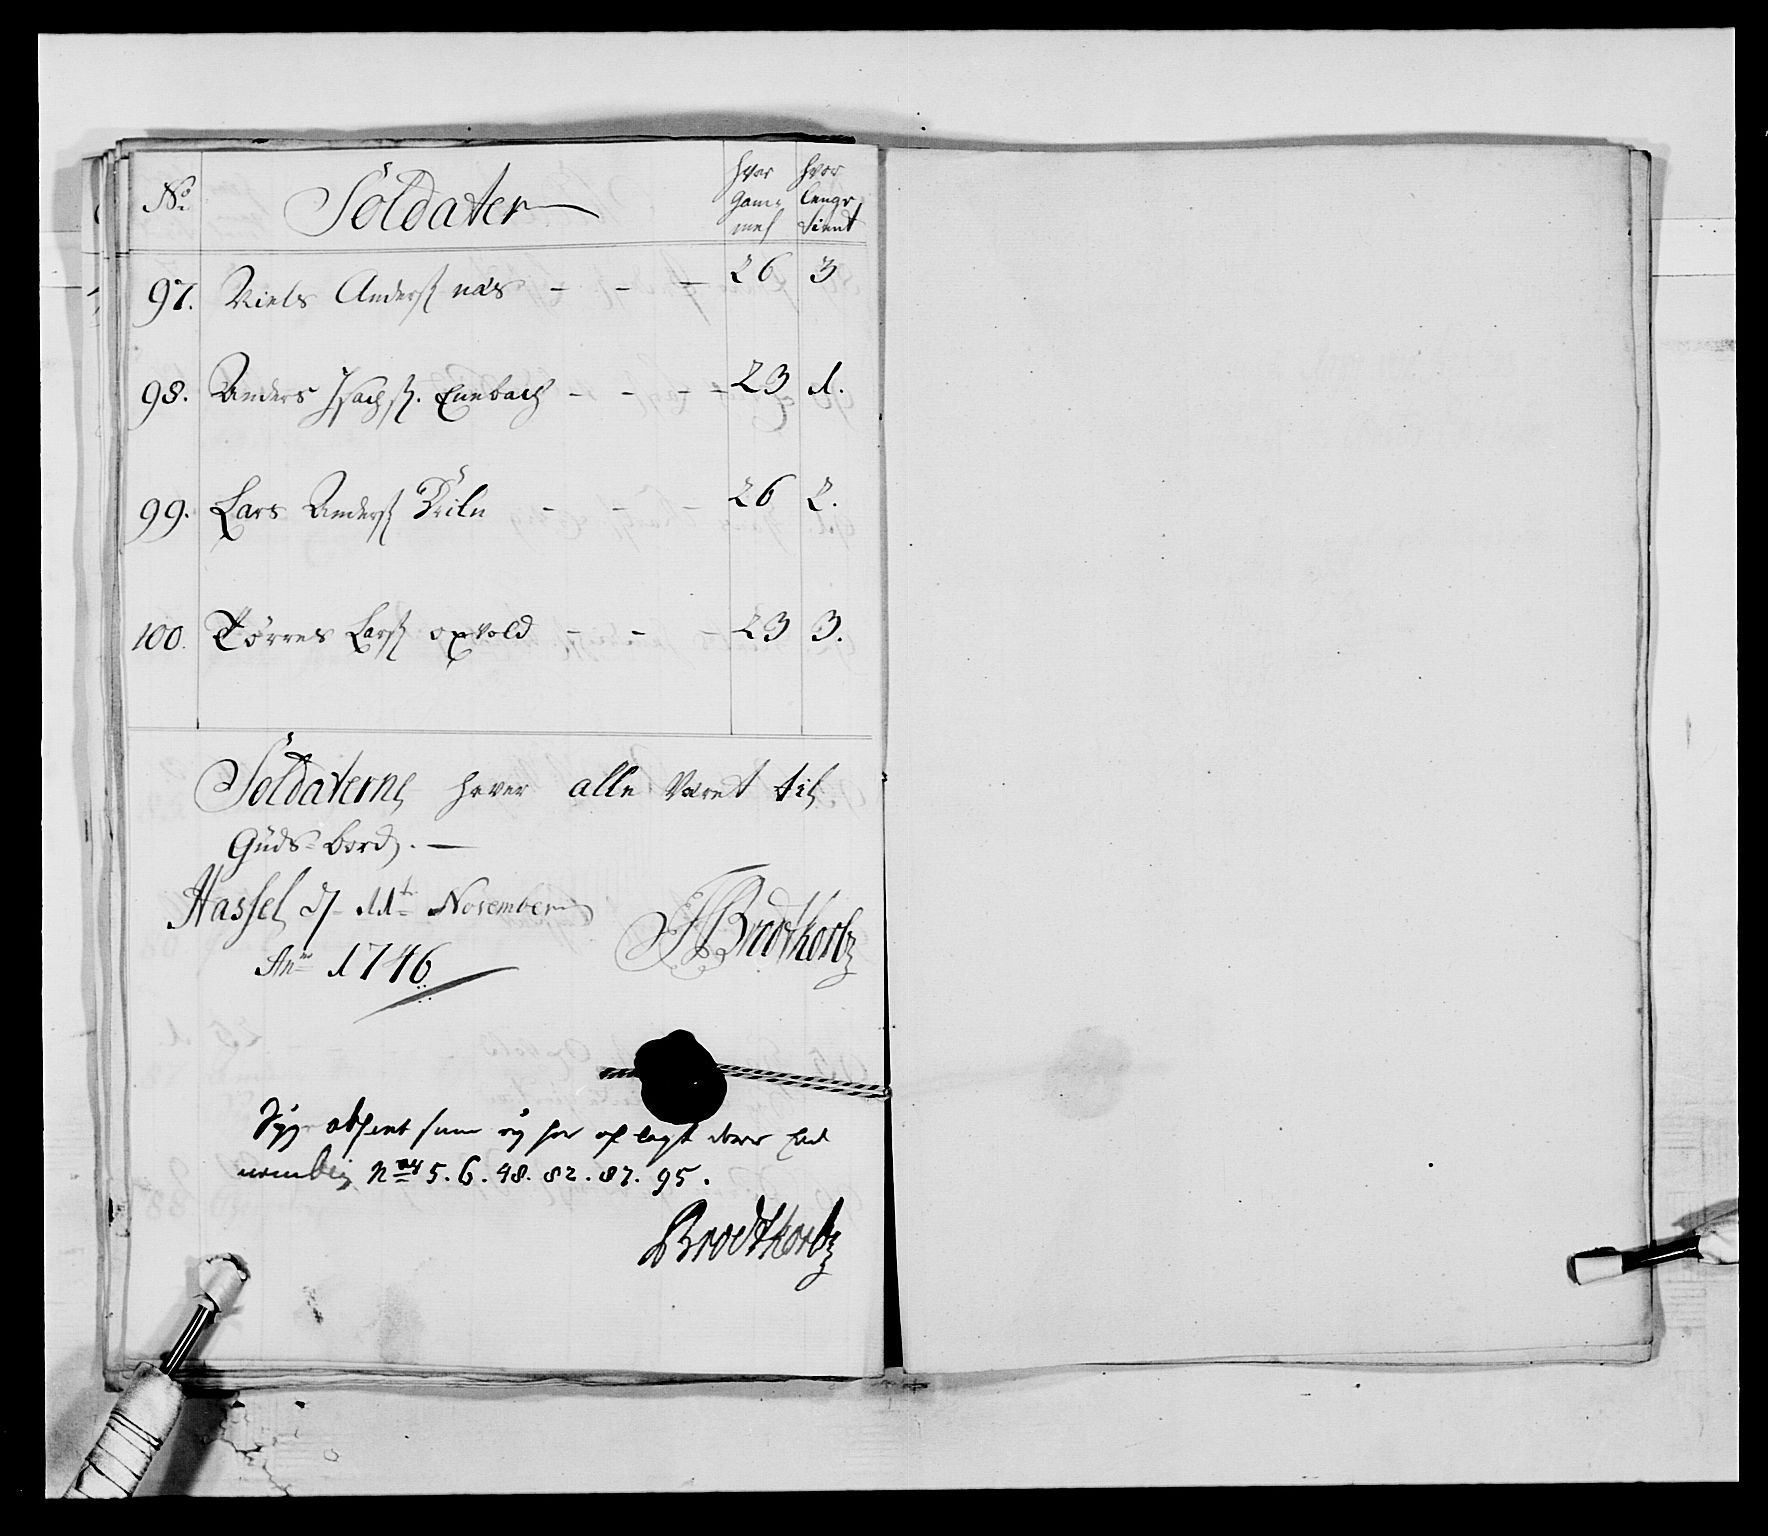 No. Soldater hvor gammel hvor lenge tient
97. Niels Anders: næs - - - 26 3
98. Anders Isachs: Enebach - - - - 23 1.
99. Lars Anders: - - - 26 2.
100. Tørres Lars: opvold - - - 23 3.
Soldaterne haver alle været til
Guds-bord. —
Hassel d. 11t November
Ano 1746
F Brodtkorb
Syg absent som ey har af lagt deres Eed
nemlig No 4 5. 6. 48. 82. 87. 95.
Brodtkorb